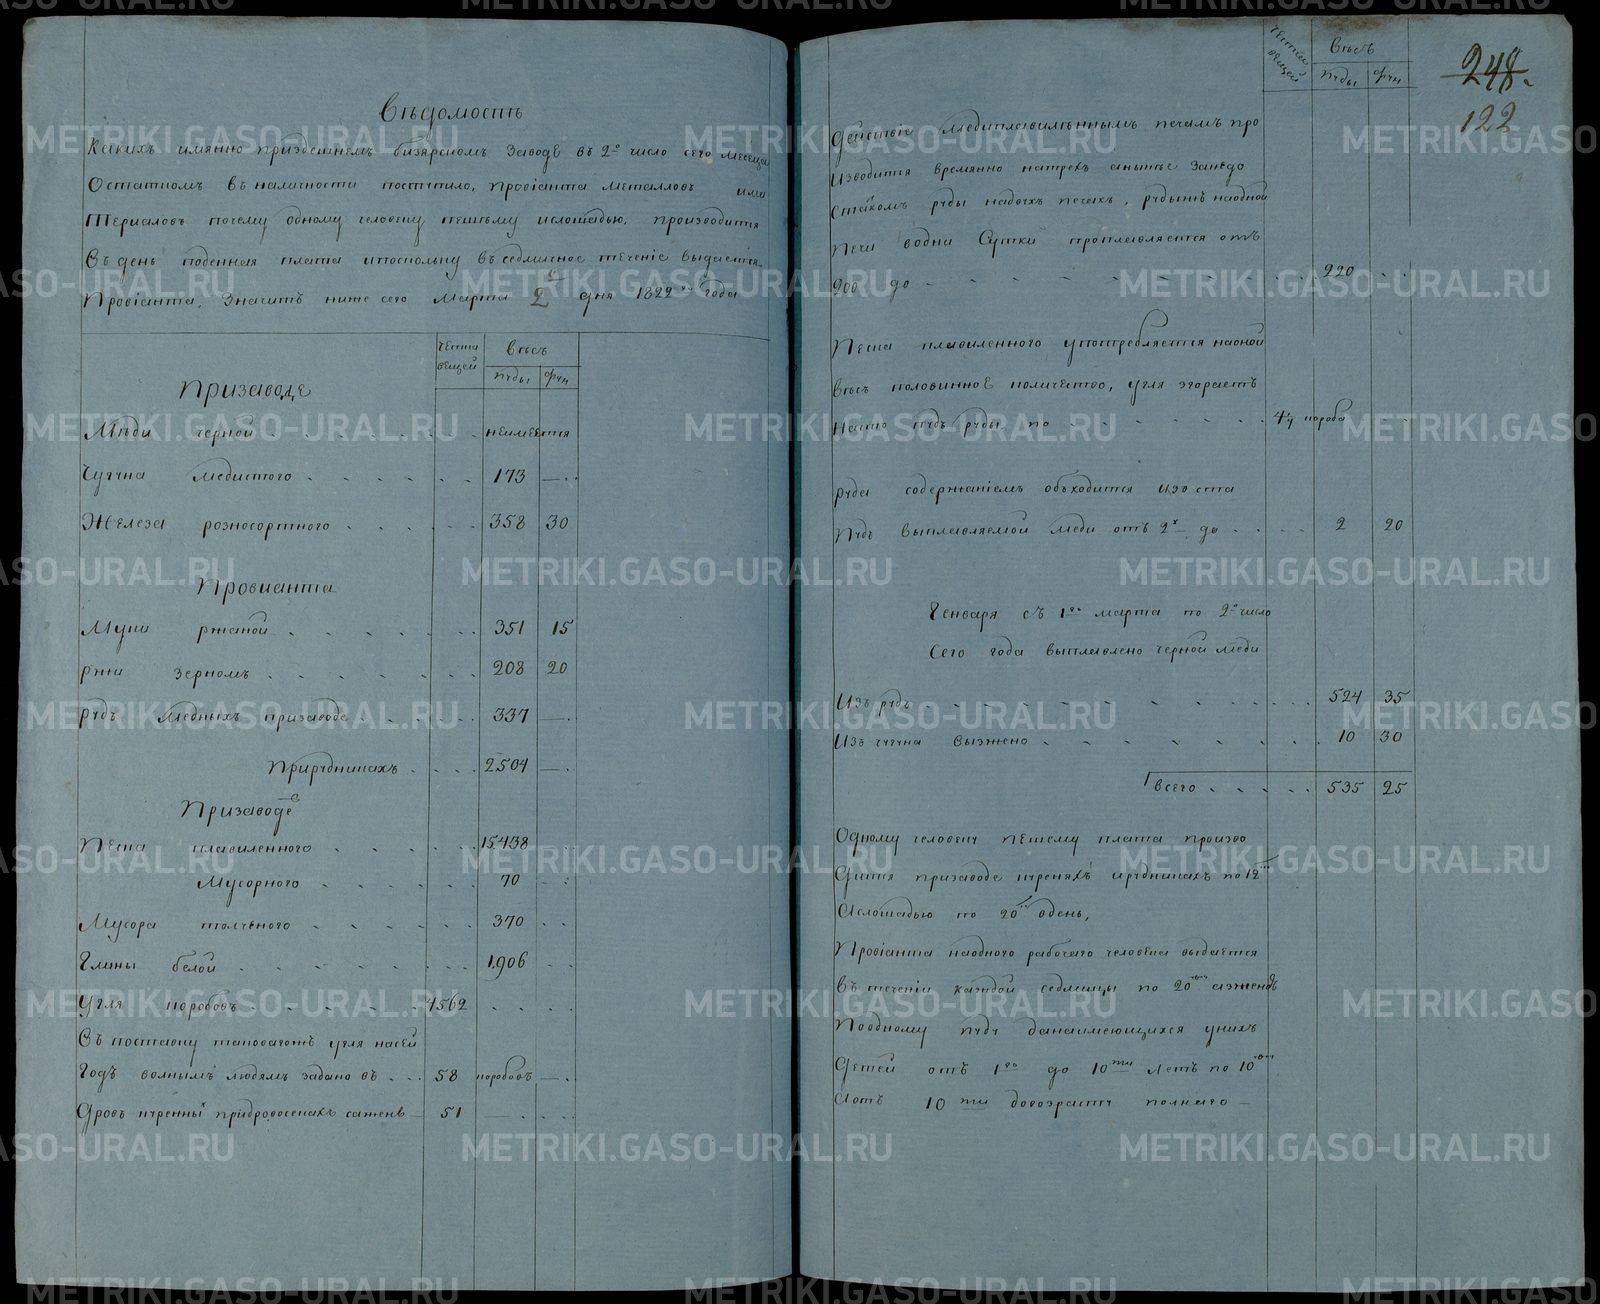 Вѣдомость
Какихъ имянно приздешнемъ бизярскомъ Заводѣ въ 2е число сего месеца
Остатномъ въ наличности поступило, провіанта металловъ има
териаловъ почему одному человеку пешему ислошадью, производится
Въ день поденная плата ипосколку въ седмисное теченіе выдается
Провіанта, Значитъ ниже сего Марта 2го дня 1822го года
числа вещей
вѣсъ
пуды фун
Призаводе
Мѣди черной неимеется
Чугуна медистого 173 —
Железа розносортного 358 30
Провианта
Муки ржаной 351 15
ржи Зерномъ 208 20
рудъ медныхъ призаводе 337 —
Прирудникахъ 2504 —
Призаводе
Песка плавиленного 15438
Мусорного 70
Мусора толченого 370
Глины белой 1906
Угля коробовъ 4562
Въ поставку таковагожъ угля насей
Годъ волнымъ людямъ задано въ 58 коробовъ —
Дровъ куренны придровосекахъ саженъ 51 —
числа вещей
вѣсъ
пуды фун
248
122
Действіе медиплавиленнымъ печамъ про
Изводится временно натрехъ аныне Занедо
Статкомъ руды надвухъ печахъ, рудыжъ наодной
печи водни Сутки проплавляется отъ
200 до 220
Песка плавиленного употребляется наоной
вѣсъ половинное количество, угля згораетъ
Насто пудъ руды по 4½ короба
руда содержаніемъ обходится изо ста
Пудъ выплавляемой меди отъ 2х до 2 20
Генваря съ 1го марта по 2е число
Сего года выплавлено черной меди
Изъ рудъ 524 35
Изъ чугуна выжжено 10 30
Всего 535 25
Одному человеку пешему плата произво
Дится призаводе куреняхъ ирудникахъ по 12
Аслошадью по 20 вдень,
Провіанта наодного рабочего человека выдается
въ течении каждой седмицы по 20 аженѣ
Поодному пуду данаимеющихся унихъ
Детей отъ 1го до 10ти летъ по 10
Аотъ 10ти довозрасту полнаго —